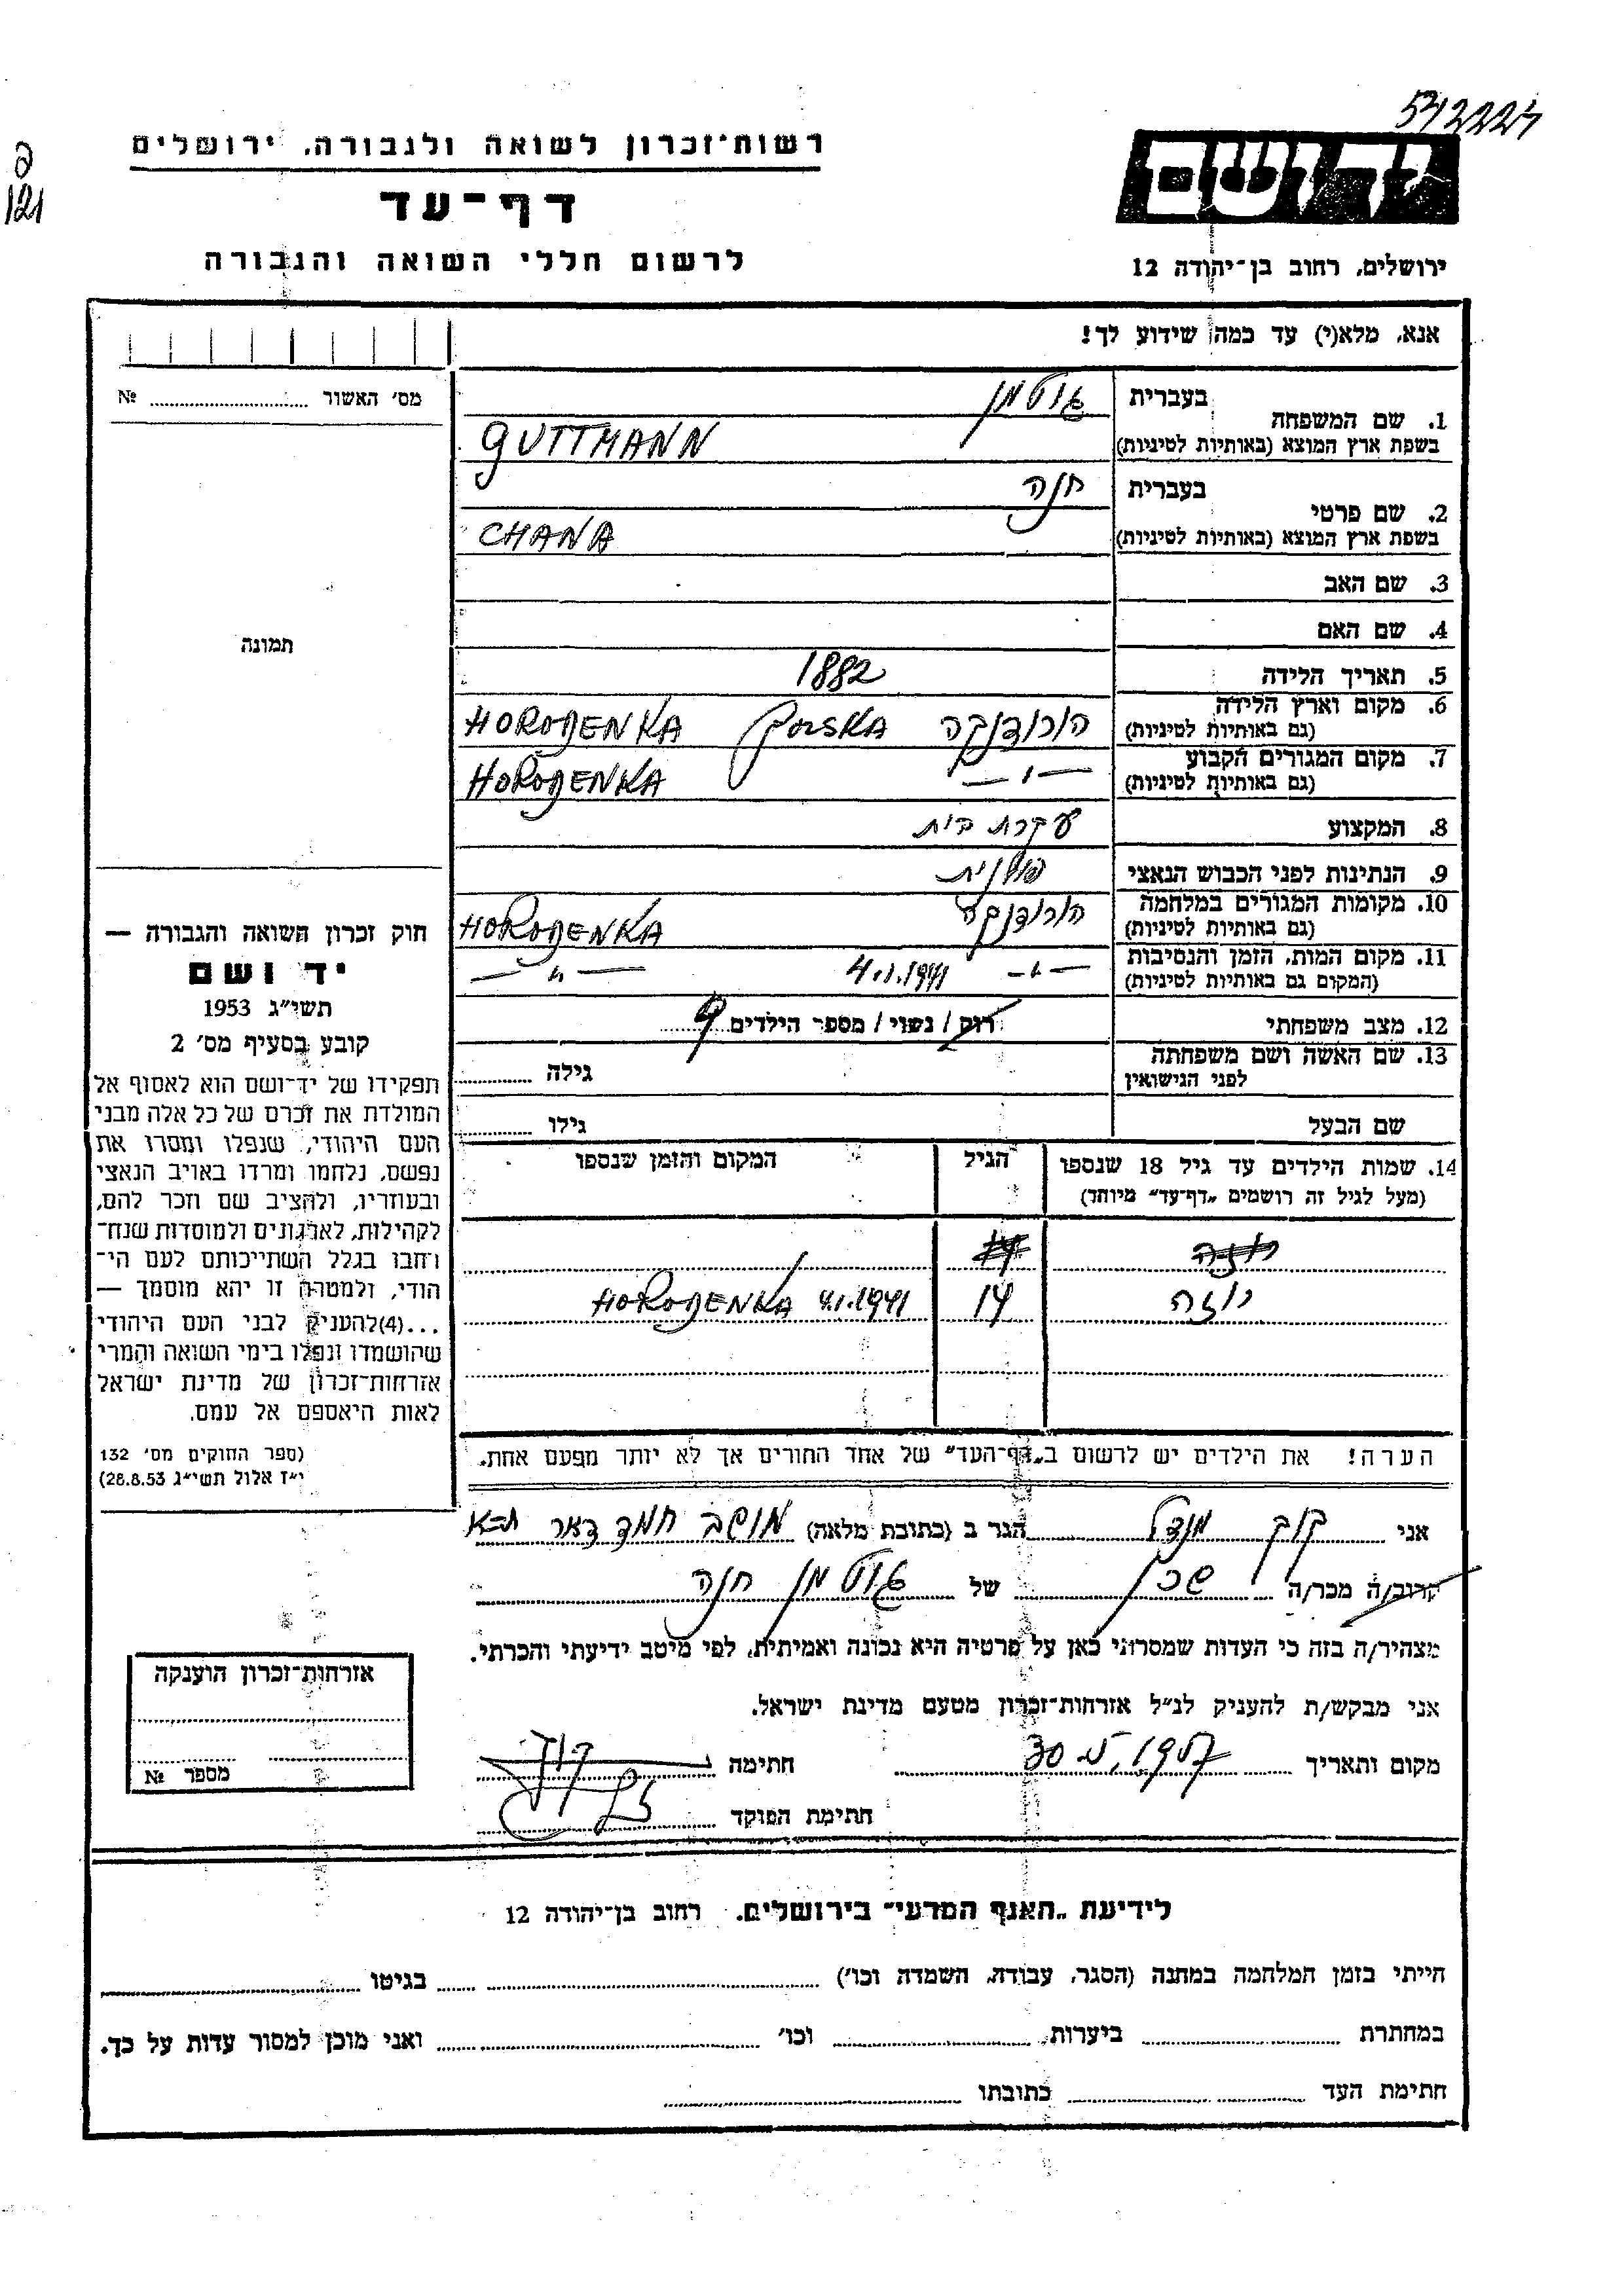 542227
ג
121
יד ושם
ירושלים, רחוב בן־יהודה 12
רשות־זכרון לשואה ולגבורה, ירושלים
דף־עד
לרשום חללי השואה והגבורה
אנא, מלא(י) עד כמה שידוע לך!
מס׳ האשור № 
1. שם המשפחה בעברית גוטמן
בשפת ארץ המוצא (באותיות לטיניות) GUTTMANN
2. שם פרטי בעברית חנה
בשפת ארץ המוצא (באותיות לטיניות) CHANA
3. שם האב
4. שם האם
5. תאריך הלידה 1882
6. מקום וארץ הלידה (גם באותיות לטיניות) הורודנקה POLSKA HORODENKA
7. מקום המגורים הקבוע (גם באותיות לטיניות) —״— HORODENKA
8. המקצוע עקרת בית
9. הנתינות לפני הכבוש הנאצי פולנית
10. מקומות המגורים במלחמה (גם באותיות לטיניות) הורודנקה HORODENKA
11. מקום המות, הזמן והנסיבות (המקום גם באותיות לטיניות) —״— 4.1.1941 —״—
12. מצב משפחתי רוק / נשוי / מספר הילדים 9
13. שם האשה ושם משפחתה לפני הנישואין גילה
שם הבעל גילו
14. שמות הילדים עד גיל 18 שנספו (מעל לגיל זה רושמים „דף־עד״ מיוחד) הגיל המקום והזמן שנספו
14 HORODENKA 4.1.1941
הערה! את הילדים יש לרשום ב„דף־העד״ של אחד ההורים אך לא יותר מפעם אחת.
תמונה
חוק זכרון השואה והגבורה —
יד ושם
תשי״ג 1953
קובע בסעיף מס׳ 2
תפקידו של יד־ושם הוא לאסוף אל
המולדת את זכרם של כל אלה מבני
העם היהודי, שנפלו ומסרו את
נפשם, נלחמו ומרדו באויב הנאצי
ובעוזריו, ולהציב שם וזכר להם,
לקהילות, לארגונים ולמוסדות שנח־
רחבו בגלל השתייכותם לעם הי־
הודי, ולמטרה זו יהא מוסמך —
...(4)להעניק לבני העם היהודי
שהושמדו ונפלו בימי השואה והמרי
אזרחות־זכרון של מדינת ישראל
לאות היאספם אל עמם.
(ספר החוקים מס׳ 132
י״ז אלול תשי״ג 28.8.53)
אני קוך מנדל הגר ב (כתובת מלאה) מושב חמד דאר ת״א
קרוב/ה מכר/ה שכן של גוטמן חנה
מצהיר/ה בזה כי העדות שמסרתי כאן על פרטיה היא נכונה ואמיתית, לפי מיטב ידיעתי והכרתי.
אני מבקש/ת להעניק לנ״ל אזרחות־זכרון מטעם מדינת ישראל.
מקום ותאריך 30 חתימה קוך
חתימת הפוקד
אזרחות־זכרון הוענקה
מספר №
לידיעת „האגף המדעי״ בירושלים, רחוב בן־יהודה 12
הייתי בזמן המלחמה במחנה (הסגר, עבודה, השמדה וכו׳) בגיטו
במחתרת ביערות, וכו׳ ואני מוכן למסור עדות על כך.
חתימת העד כתובתו